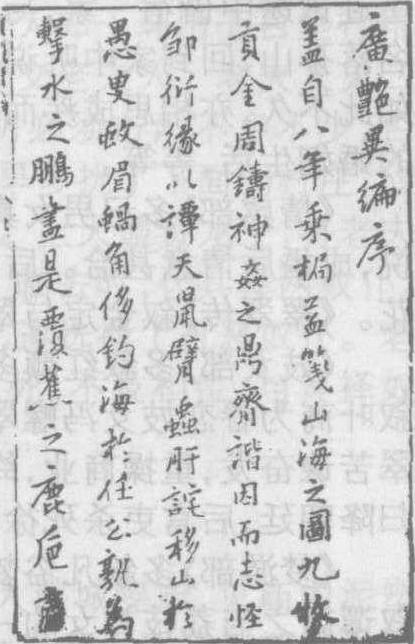 廣艷異編序
蓋自八年乘樏益箋山海之圖九牧
貢金周鑄神姦之鼎齊諧因而志怪
鄒衍緣以譚天鼠臂蟲肝詫移山於
愚叟蚊眉蝸角侈釣海於任公孰為
擊水之鵬盡是覆蕉之鹿卮